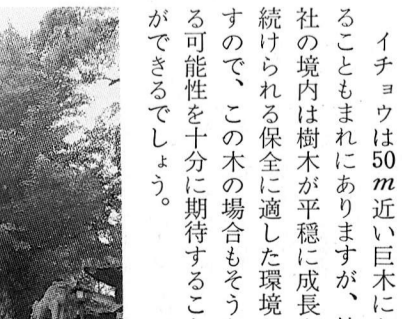 イチョウは50m近い巨木に
ることもまれにありますが、
社の境内は樹木が平穏に成長
続けられる保全に適した環境
すので、この木の場合もそう
る可能性を十分に期待するこ
ができるでしょう。